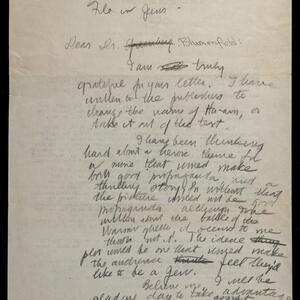 File in Jews.
Dear Dr. Greenberg, Blumenfield:
I am truly
grateful for your letter. I have
written to the publishers to
change the name of Hiram, or
take it out of the text.
I have been thinking
hard about a heroic theme for
a movie that would make
both good propaganda, and a
thrilling story. So
the picture would not be good
propaganda
written about the battle of the
Warsaw ghetto, it occurs to me
that's not it. The ideal thing
plot would be one that would make
the audience feel they'd
like to be a Jew.
Believe me, I will be
glad any day to take advantage